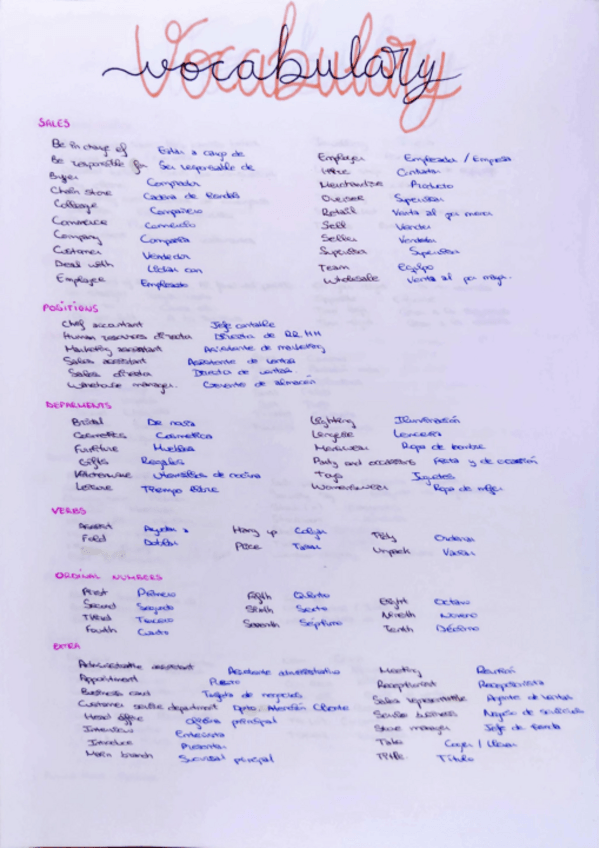 Vocabulary
SALES
Be in charge of Estar a cargo de
Be responsible for Ser responsable de
Buyer Comprador
Chain store Cadena de tiendas
Colleage Compañero
Commerce Comercio
Company Compañía
Customer
Deal with Lidiar con
Employee Empleado
Employer Empleador / Empresa
Hire Contratar
Merchandise Producto
Oversee Supervisar
Retail Venta al por menor
Sell Vender
Seller Vendedor
Supervisor Supervisor
Team Equipo
Wholesale Venta al por mayor.
POSITIONS
Chief accountant Jefe contable
Human resources director Director de RR.HH
Marketing assistant Asistente de marketing
Sales assistant Asistente de ventas
Sales director Director de ventas.
Warehouse manager. Gerente de almacén
DEPARMENTS
Bridal De novia
Cosmetics Cosmetica
Furniture Muebles
Gifts Regalos
Kitchenware Utensilios de cocina
Leisure Tiempo libre
Lighting Iluminación
Lenceria
Menswear Ropa de hombre
Party and occasions Fiesta y de ocasión
Toys Juguetes
Womenswear Ropa de mujer
VERBS
Assist Ayudar a
Fold Doblar
Hang up Colgar
Price
Tidy Ordenar
Unpack Vaciar
ORDINAL NUMBERS
First Primero
Second Segundo
Third Tercero
Fourth Cuarto
Fifth Quinto
Sixth Sexto
Seventh Séptimo
Octavo
Nineth Noveno
Tenth Décimo
EXTRA
Administrative assistant Asistente administrativo
Appointment Puesto
Business card Tarjeta de negocios
Customer service department Dpto. Atención Cliente
Head office Oficina principal
Interview Entrevista
Introduce Presentar
Main branch Sucursal principal
Meeting Reunión
Receptionist Recepcionista
Sales representative Agente de ventas
Service business Negocio de servicios
Store manager Jefe de tienda
Take Coger / Llevar
Title Título